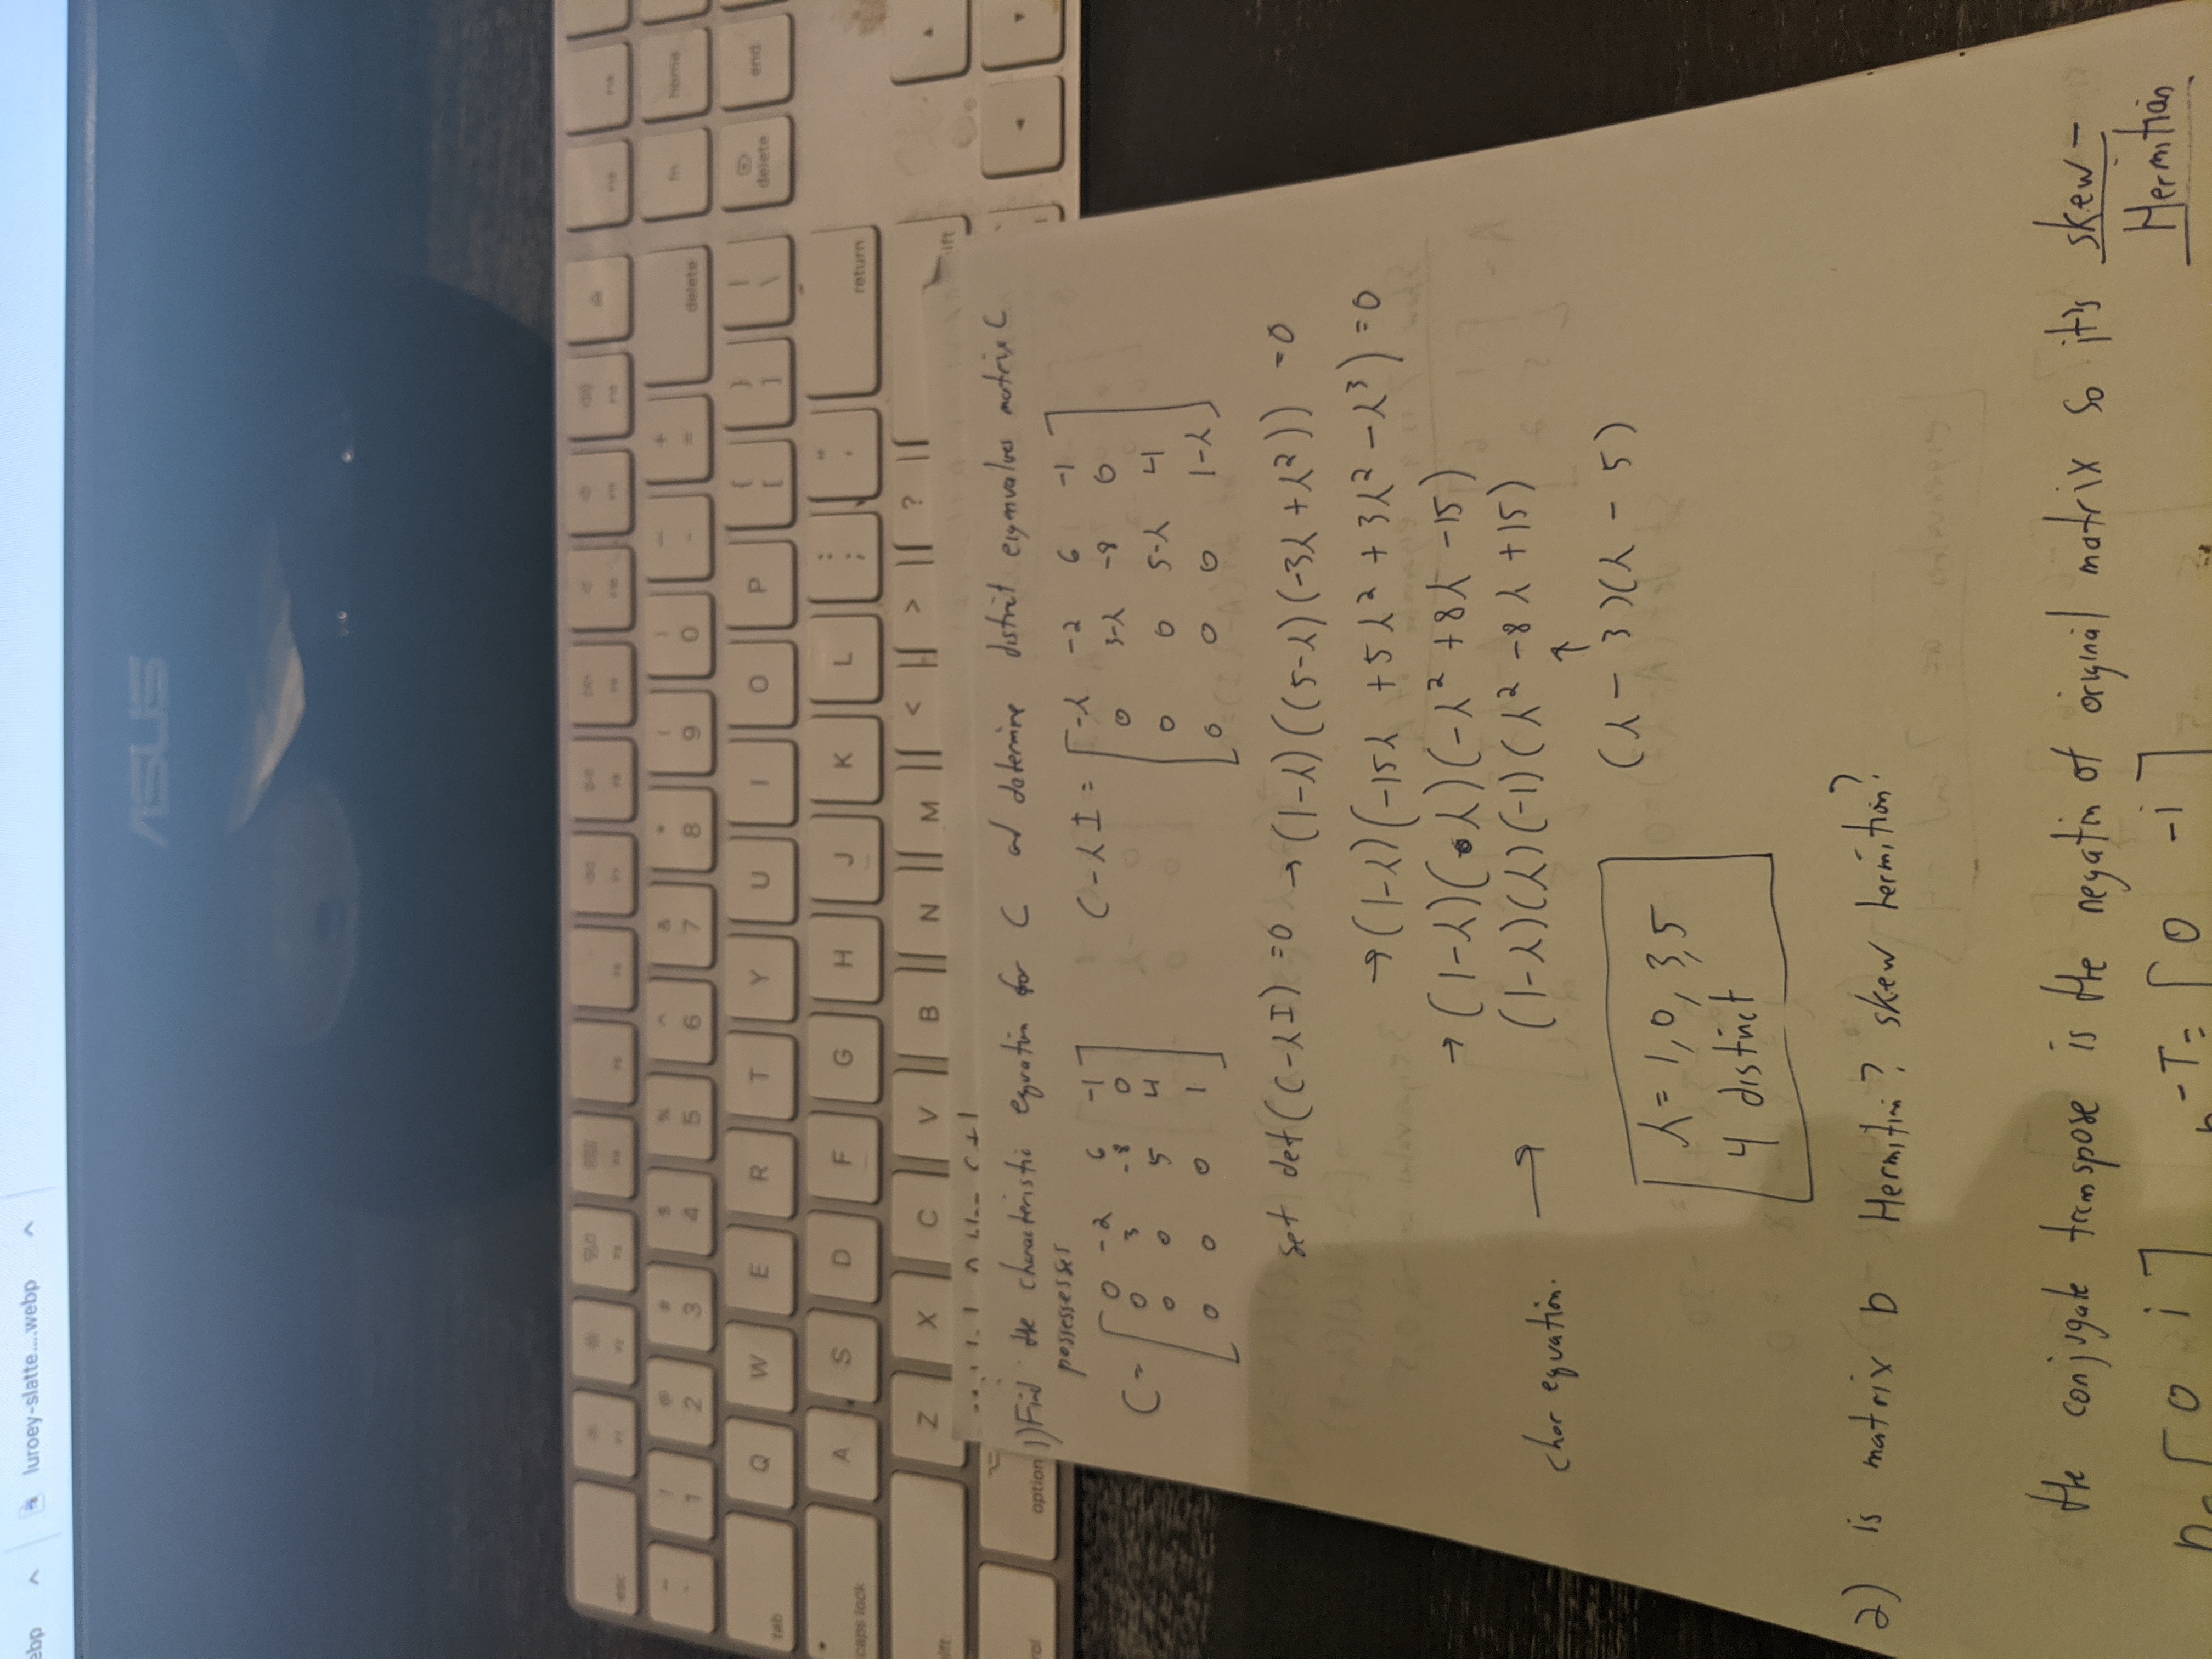 luroey-slatte....webp
ASUS
esc
~ ! @ # $ % ^ & * ( ) — +
1 2 3 4 5 6 7 8 9 0 - = delete fn home
tab Q W E R T Y U I O P { [ } ] | \ delete end
caps lock A S D F G H J K L : ; " ' return
Z X C V B N M < > ?
option
1) Find the characteristic equation for C and determine distinct eigenvalues matrix C
possessesses
C = [ 0 -2 6 -1
0 3 -8 0
0 0 5 4
0 0 0 1 ]
C-λI = [ -λ -2 6 -1
0 3-λ -8 0
0 0 5-λ 4
0 0 0 1-λ ]
set det(C-λI) =0 → (1-λ)((5-λ)(-3λ+λ²)) =0
→ (1-λ)(-15λ +5λ² + 3λ² - λ³) =0
→ (1-λ)(λ)(-λ² +8λ -15)
char equation. → (1-λ)(λ)(-1)(λ² -8λ +15)
↑
(λ - 3)(λ - 5)
λ = 1, 0, 3, 5
4 distinct
2) is matrix D Hermitian? skew hermitian?
the conjugate transpose is the negation of original matrix so it's skew-
Hermitian
D= [ 0 i ] -T= [ 0 -i ]